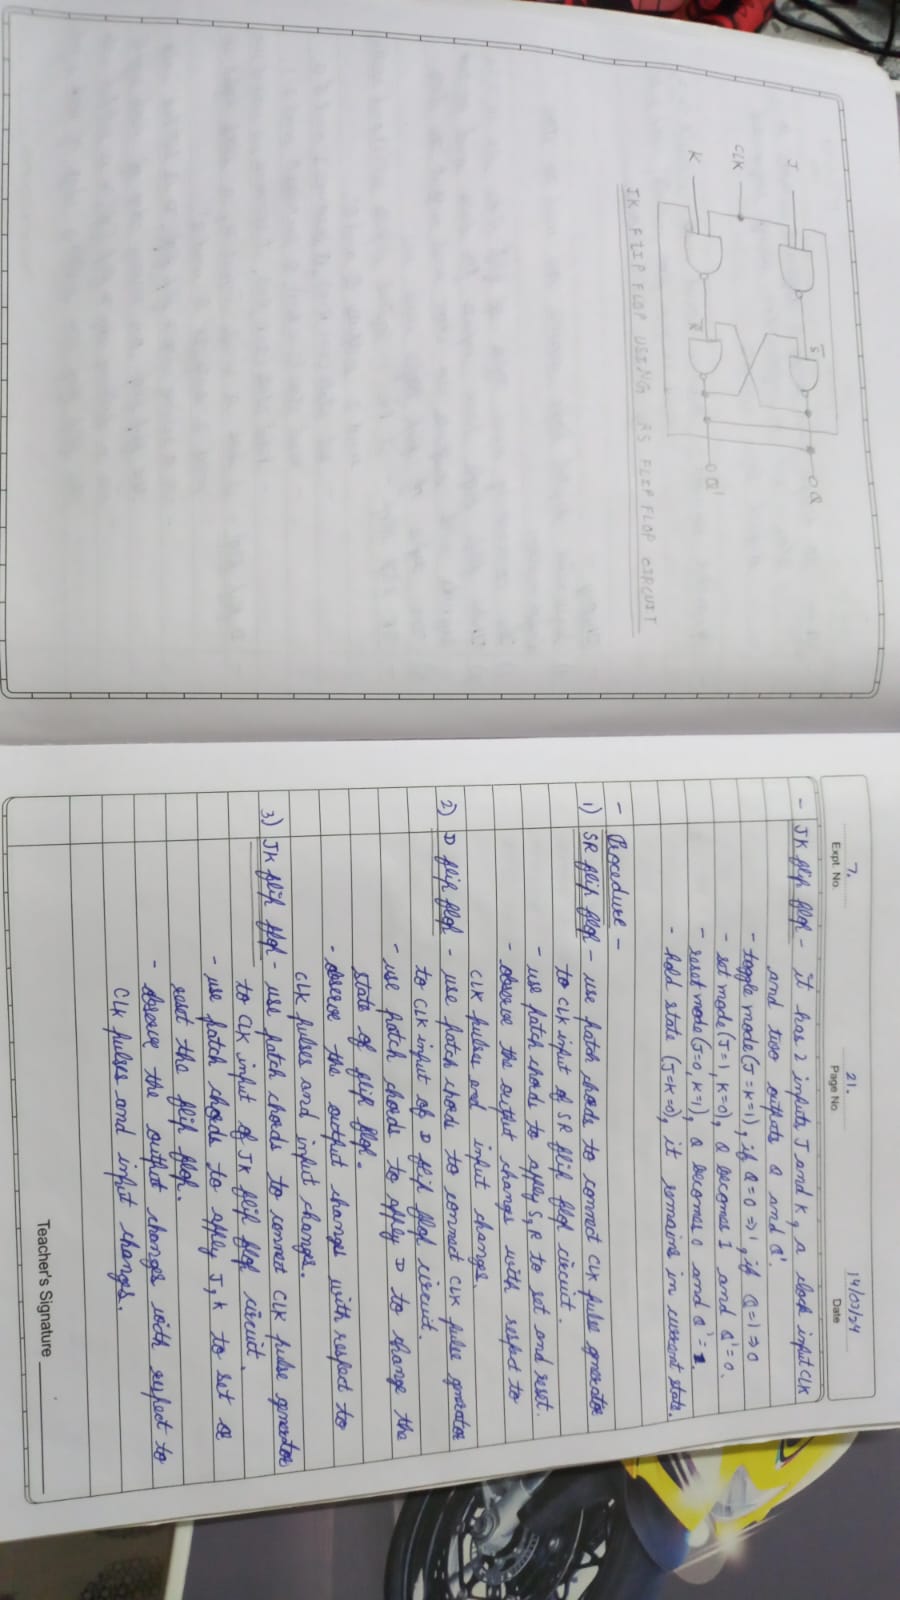 J
CLK
K
S
R
Q
Q'
JK FLIP FLOP USING RS FLIP FLOP CIRCUIT
7.
Expt. No.
21.
Page No.
14/03/24
Date
- JK flip flop - it has 2 inputs J and K, a clock input CLK
and two outputs Q and Q'.
- toggle mode (J=K=1), if Q=0 => 1, if Q=1 => 0
- set mode (J=1, K=0), Q becomes 1 and Q'=0.
- reset mode (J=0, K=1), Q becomes 0 and Q'=1.
- hold state (J=K=0), it remains in current state.
- Procedure -
1) SR flip flop - use patch chords to connect CLK pulse generator
to CLK input of SR flip flop circuit.
- use patch chords to apply S, R to set and reset.
- observe the output changes with respect to
CLK pulses and input changes.
2) D flip flop - use patch chords to connect CLK pulse generator
to CLK input of D flip flop circuit.
- use patch chords to apply D to change the
state of flip flop.
- observe the output changes with respect to
CLK pulses and input changes.
3) JK flip flop - use patch chords to connect CLK pulse generator
to CLK input of JK flip flop circuit.
- use patch chords to apply J, K to set or
reset the flip flop.
- observe the output changes with respect to
CLK pulses and input changes.
Teacher's Signature